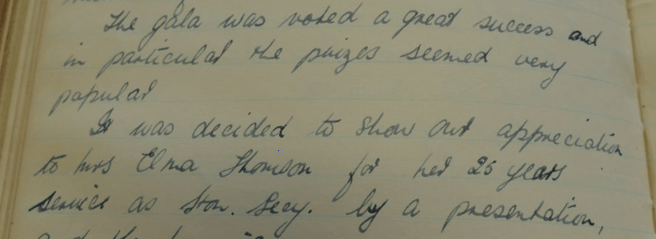 The gala was voted a great success and
in particular the prizes seemed very
popular
It was decided to show our appreciation
to Mrs Elma Thomson for her 25 years
service as Hon. Secy. by a presentation,